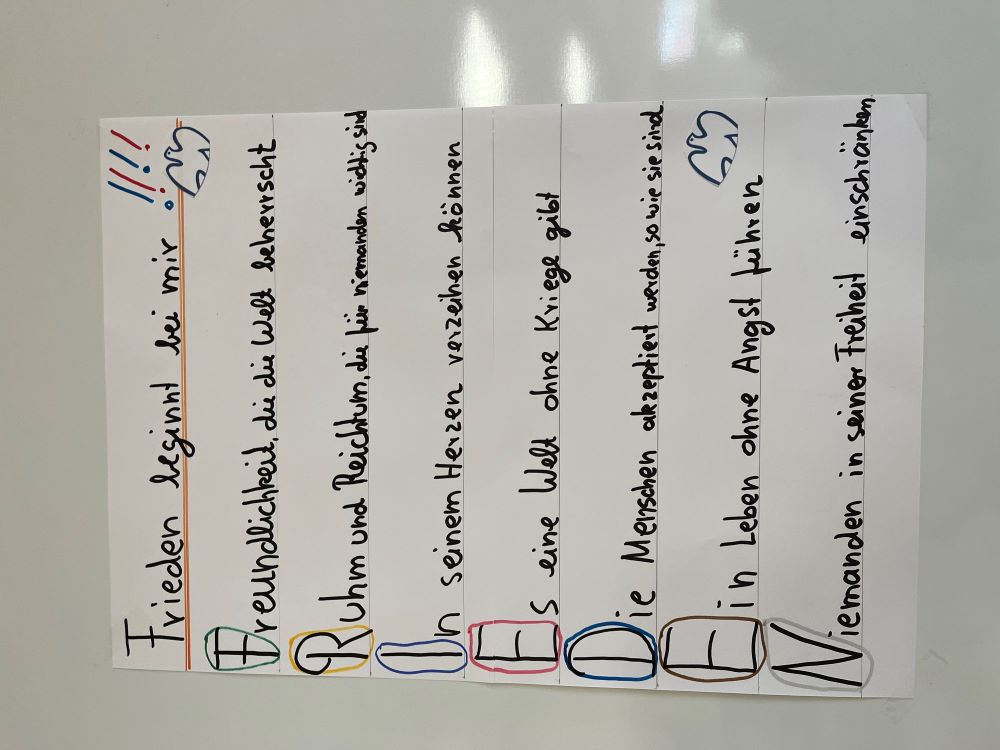 Frieden beginnt bei mir !!!!
Freundlichkeit, die die Welt beherrscht
Ruhm und Reichtum, die für niemanden wichtig sind
In seinem Herzen verzeihen können
Es eine Welt ohne Kriege gibt
Die Menschen akzeptiert werden, so wie sie sind
Ein Leben ohne Angst führen
Niemanden in seiner Freiheit einschränken